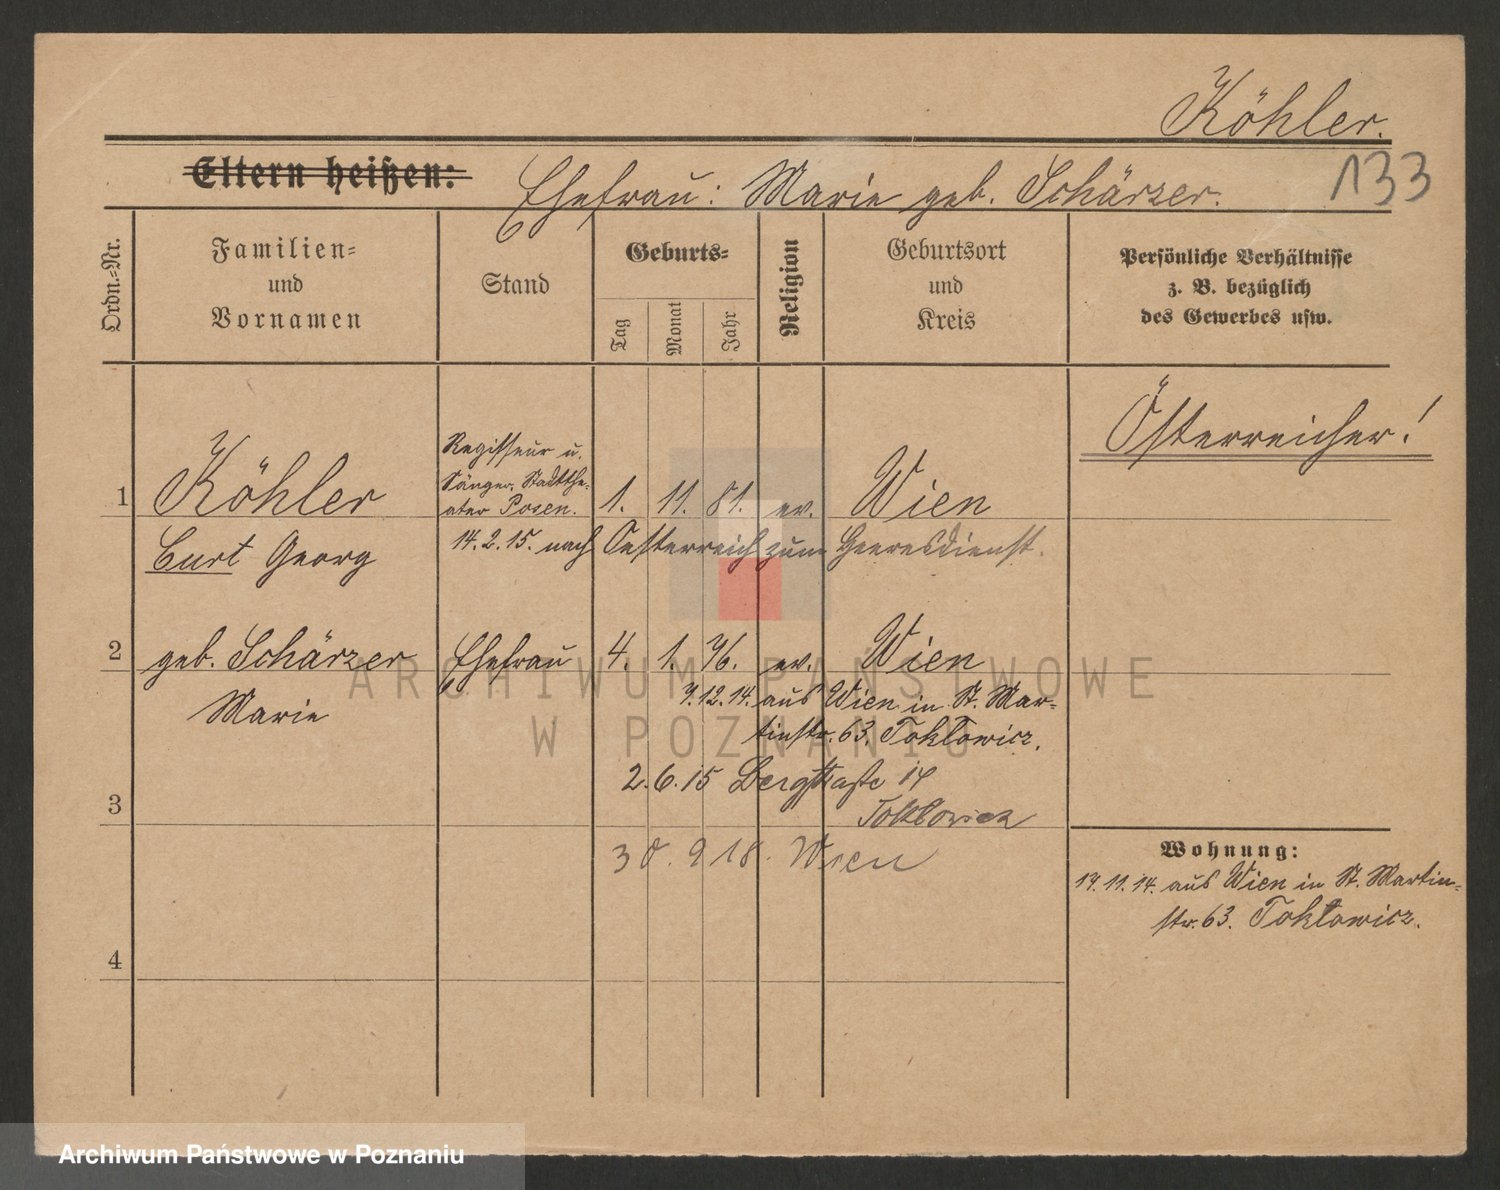 Köhler.
Eltern heißen:
Ehefrau: Marie geb. Schärzer.
133
Ordn.=Nr.
Familien=
und
Vornamen
Stand
Geburts=
Tag
Monat
Jahr
Religion
Geburtsort
und
Kreis
Persönliche Verhältnisse
z. B. bezüglich
des Gewerbes usw.
Österreicher!
1
Köhler
Curt Georg
Regisseur u.
Sänger. Stadtthe-
ater Posen.
1. 11. 81. ev. Wien
14. 2. 15. nach Oesterreich zum Heeresdienst.
2
geb. Schärzer
Marie
Ehefrau
4. 1. 76. ev. Wien
7.12.14. aus Wien in St. Mar-
tinstr. 63. Toklowicz.
2.6.15 Bergstraße 14
Toklowicz
3
30.9 18. Wien
Wohnung:
17. 11. 14. aus Wien in St. Martin-
str. 63. Toklowicz.
4
ARCHIWUM PAŃSTWOWE
W POZNANIU
Archiwum Państwowe w Poznaniu